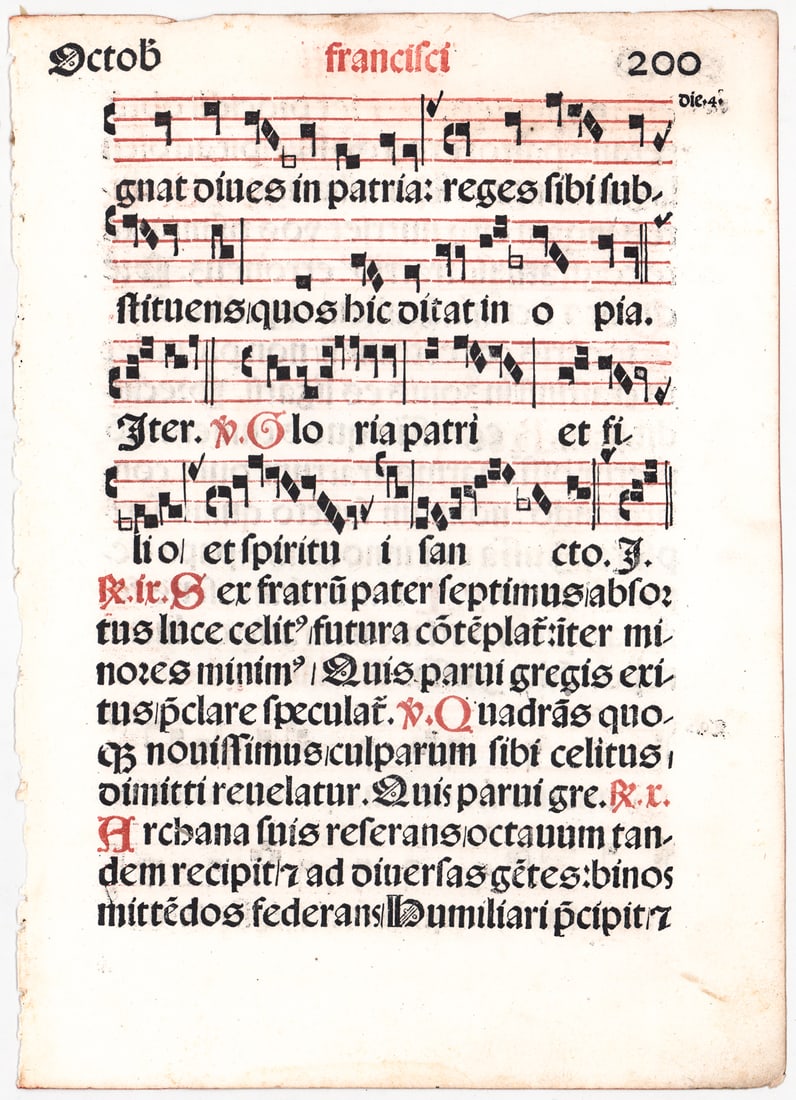 Octob̄ francisci 200
die.4.
gnat diues in patria: reges sibi sub-
stituens/quos hic ditat in o pia.
Iter. ℣.Glo ria patri et fi-
li o/ et spiritu i san cto. I.
℟.ix.Sex fratrū pater septimus/absor
tus luce celitꝰ/futura cōtēplat̄:iter mi-
nores minimꝰ/Quis parui gregis exi-
tus/p̄clare speculat̄.℣.Quadrās quo-
qꝫ nouissimus/culparum sibi celitus/
dimitti reuelatur.Quis parui gre.℟.x.
Archana suis reserans/octauum tan-
dem recipit/⁊ ad diuersas gētes:binos
mittēdos federans/Humiliari p̄cipit/⁊